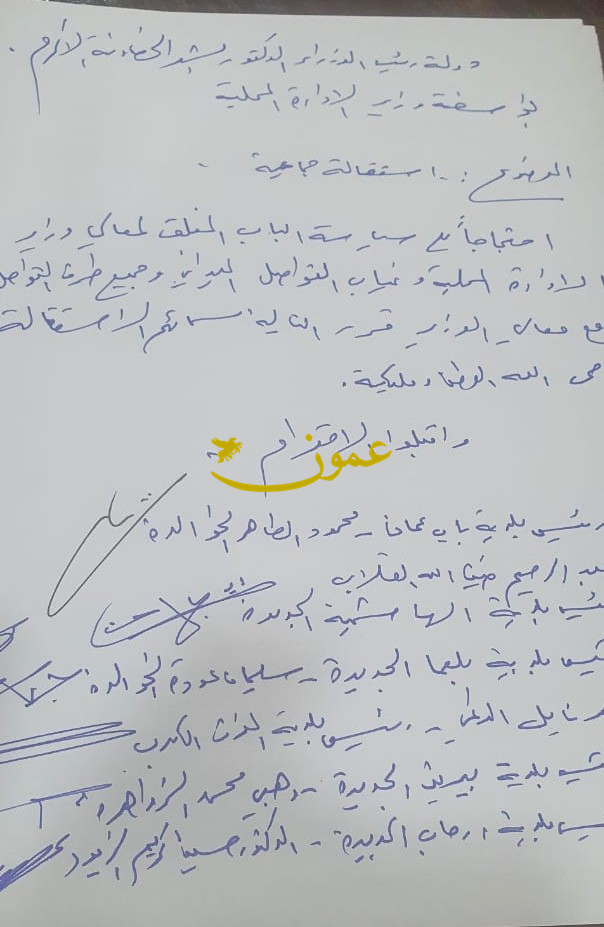 دولة رئيس الوزراء الدكتور بشر الخصاونة الأكرم .
بواسطة وزير الإدارة المحلية
الموضوع :- استقالة جماعية
احتجاجاً على سياسة الباب المغلق لمعالي وزير
الإدارة المحلية وغياب التواصل الميداني وجميع طرق التواصل
مع معالي الوزير قرر التالية اسمائهم الاستقالة
حمى الله الوطن ومليكه .
واقبلوا الاحترام
عمون
رئيس بلدية باب عمان - محمود الطاهر الخوالدة
عبد الرحيم ضيف الله
رئيس بلدية الهاشمية الجديدة
رئيس بلدية بلعما الجديدة - سليمان عودة الخوالدة
نايل - رئيس بلدية المفرق الكبرى
بلدية بيرين الجديدة - وهبي محمد الزواهرة
رئيس بلدية ارحاب الجديدة - الدكتور كريم الزيود